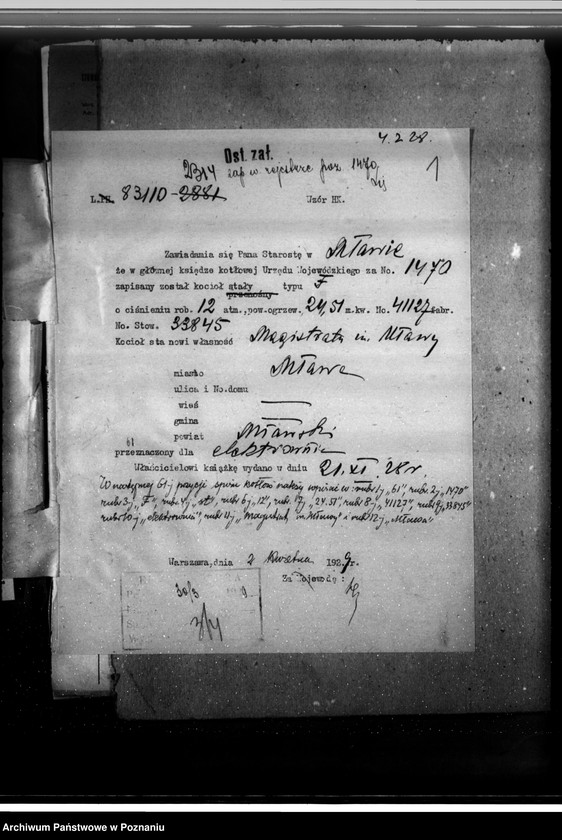 4.2.28.
Ost. zał.
2314 zap w rejestrze poz 1470
1
L. 83110-2881
Wzór HK.
Zawiadania się Pana Starostę w Mławie
że w głównej księdze kotłowej Urzędu Wojewódzkiego za No. 1470
zapisany został kocioł stały typu F
przenośny
o ciśnieniu rob. 12 atm.,pow.ogrzew. 24,51 m.kw. No. 41127 fabr.
No. Stow. 33845
Kocioł sta nowi własność Magistratu m. Mławy
miasto Mława
ulica i No.domu
wieś —
gmina —
powiat Mławski
przeznaczony dla elektrowni
Właścicielowi książkę wydano w dniu 21.XI.28r.
W następnej 61-j pozycji spisu kotłów należy wpisać w: rubr 1j „61", rubr. 2-j „1470"
rubr 3-j „F", rubr 4j „st", rubr 6-j „12", rubr. 7j „24.51", rubr 8-j „41127", rubr 9j „33845"
rubr 10-j „elektrownia", rubr 11-j „Magistrat m. Mławy" i rubr 12-j „Mława"
Warszawa,dnia 2 kwietnia 1929r.
Za Wojewodę :
30/3 9
3/4
Archiwum Państwowe w Poznaniu